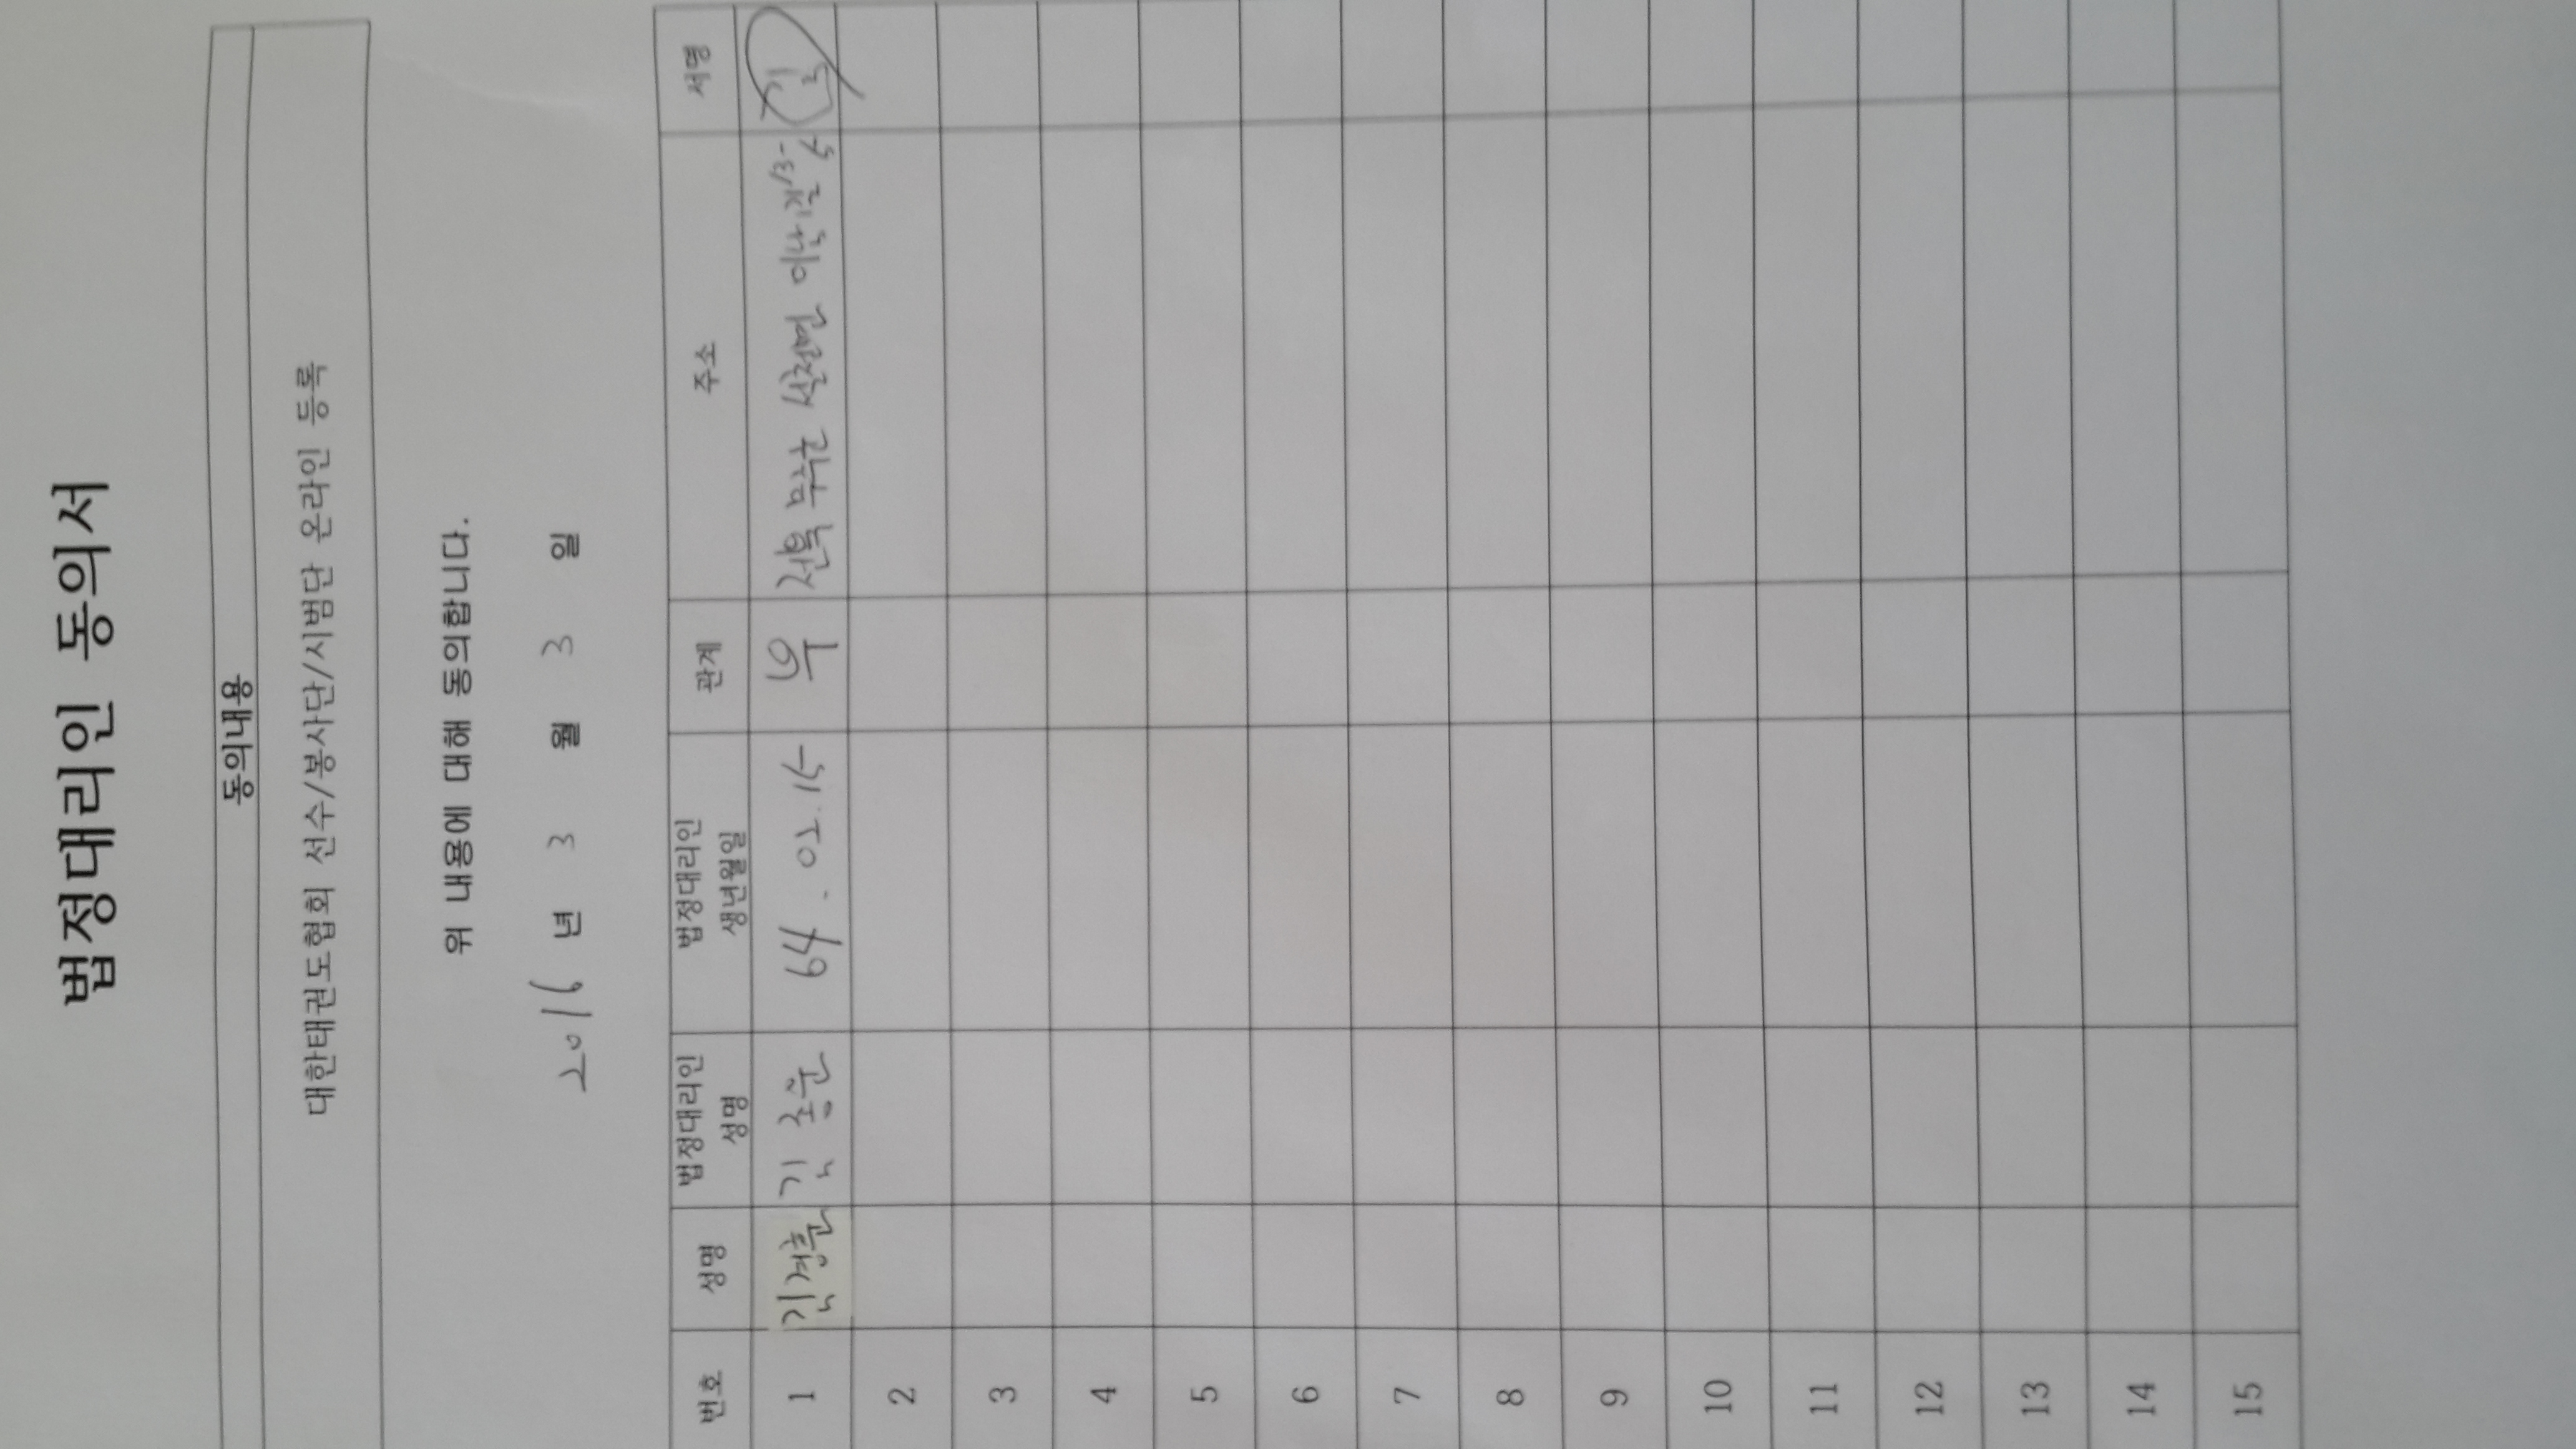 법정대리인 동의서
동의내용
대한태권도협회 선수/봉사단/시범단 온라인 등록
위 내용에 대해 동의합니다.
2016 년 3 월 3 일
번호 성명 법정대리인 성명 법정대리인 생년월일 관계 주소 서명
1 김경훈 김종훈 부 전북 무주군 설천면 이남길
2
3
4
5
6
7
8
9
10
11
12
13
14
15